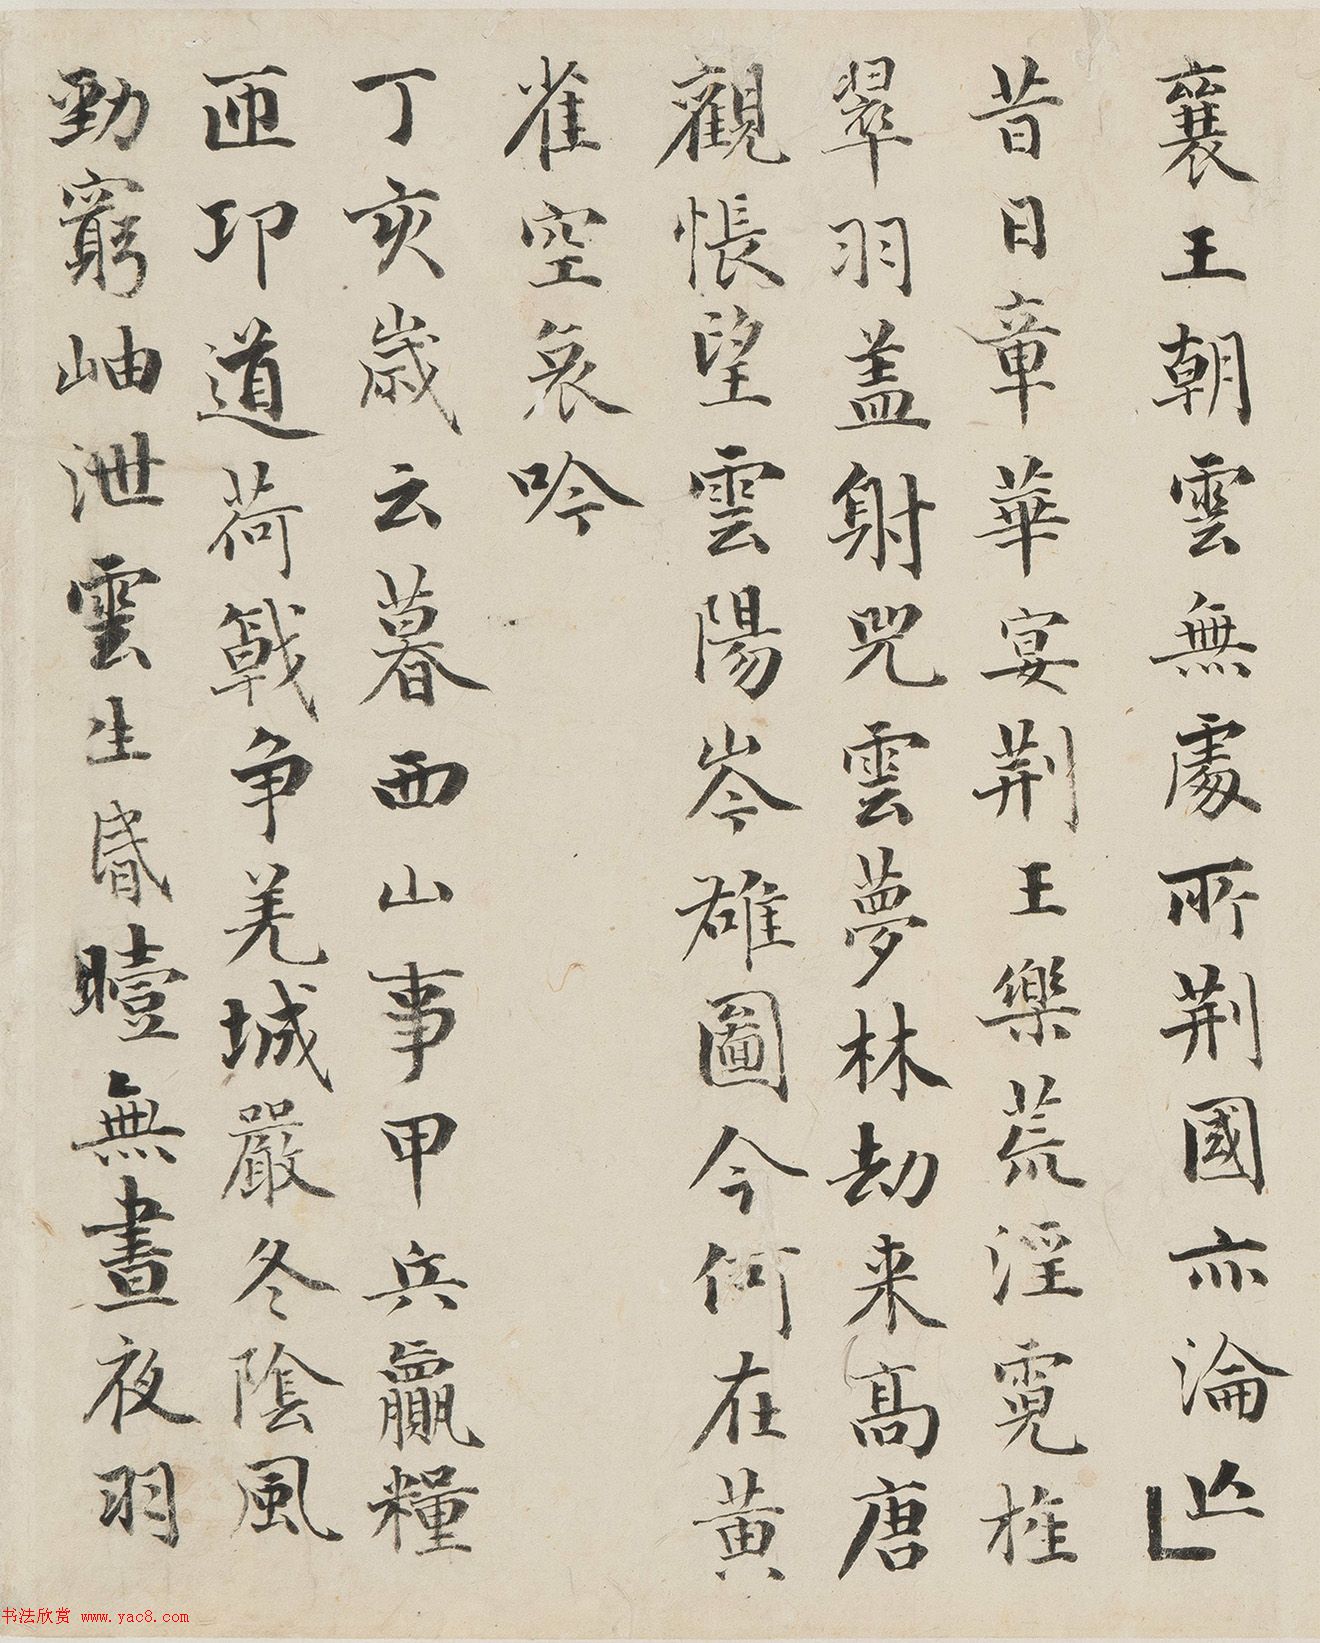 襄王朝雲無處所荆國亦淪亡
昔日章華宴荆王樂荒淫霓旌
翠羽蓋射兕雲夢林劫来高唐
觀悵望雲陽岑雄圖今何在黄
雀空哀吟
丁亥歲云暮西山事甲兵贏糧
匝邛道荷戟争羌城嚴冬陰風
勁窮岫泄雲生昏曀無晝夜羽
书法欣赏 www.yac8.com